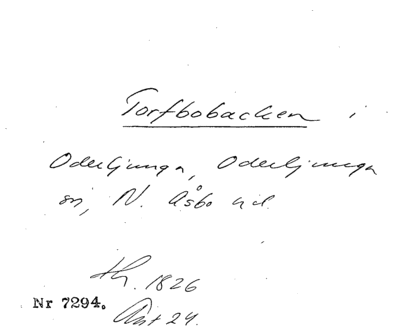 Torfbobacken i
Oderljunga, Oderljunga
sn, N. Åsbo hd.
th. 1826
Nr 7294.
Ant 24.